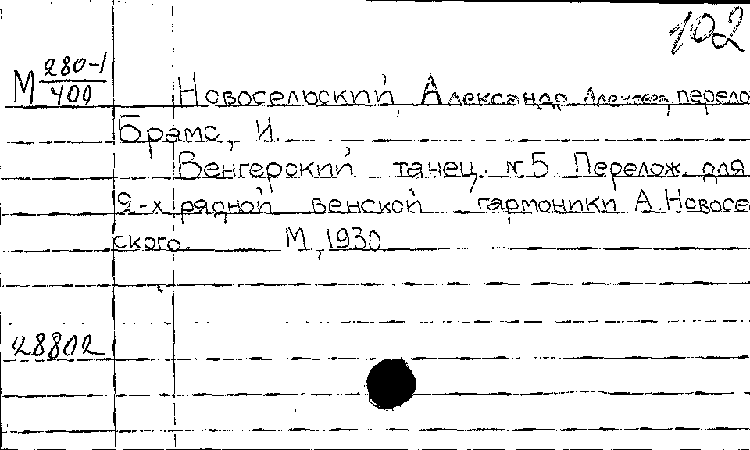 102
М 280-1/400
Новосельский, Александр перело
Брамс, И.
Венгерский танец. №5 Перелож. для
2-х рядной венской гармоники А. Новосе
ского М, 1930
28802